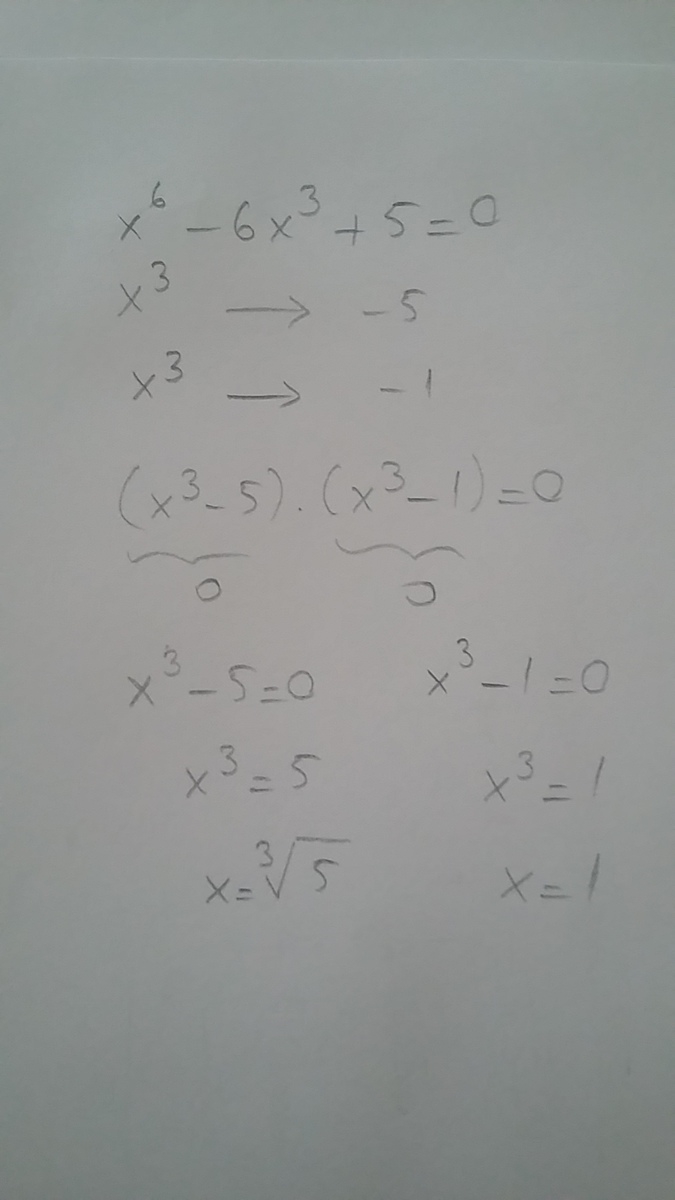 x⁶ - 6x³ + 5 = 0
x³ → -5
x³ → -1
(x³ - 5) . (x³ - 1) = 0
0 0
x³ - 5 = 0 x³ - 1 = 0
x³ = 5 x³ = 1
x = ∛5 x = 1